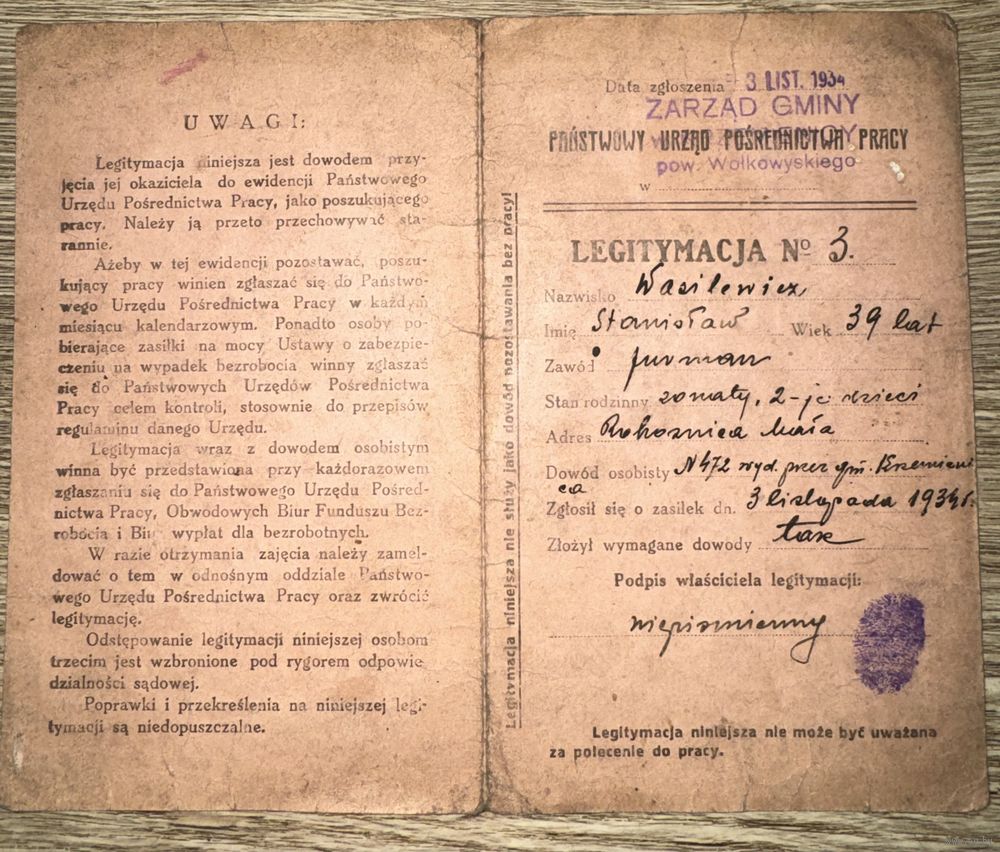 UWAGI:
Legitymacja niniejsza jest dowodem przy-
jęcia jej okaziciela do ewidencji Państwowego
Urzędu Pośrednictwa Pracy, jako poszukującego
pracy. Należy ją przeto przechowywać sta-
rannie.
Ażeby w tej ewidencji pozostawać, poszu-
kujący pracy winien zgłaszać się do Państwo-
wego Urzędu Pośrednictwa Pracy w każdym
miesiącu kalendarzowym. Ponadto osoby po-
bierające zasiłki na mocy Ustawy o zabezpie-
czeniu na wypadek bezrobocia winny zgłaszać
się do Państwowych Urzędów Pośrednictwa
Pracy celem kontroli, stosownie do przepisów
regulaminu danego Urzędu.
Legitymacja wraz z dowodem osobistym
winna być przedstawiona przy każdorazowem
zgłaszaniu się do Państwowego Urzędu Pośred-
nictwa Pracy, Obwodowych Biur Funduszu Bez-
robocia i Biur wypłat dla bezrobotnych.
W razie otrzymania zajęcia należy zamel-
dować o tem w odnośnym oddziale Państwo-
wego Urzędu Pośrednictwa Pracy oraz zwrócić
legitymację.
Odstępowanie legitymacji niniejszej osobom
trzecim jest wzbronione pod rygorem odpowie-
dzialności sądowej.
Poprawki i przekreślenia na niniejszej legi-
tymacji są niedopuszczalne.
Legitymacja niniejsza nie służy jako dowód pozostawania bez pracy!
Data zgłoszenia 3 LIST. 1934
ZARZĄD GMINY
PAŃSTWOWY URZĄD POŚREDNICTWA PRACY
pow. Wołkowyskiego
w
LEGITYMACJA Nº 3.
Nazwisko Wasilewicz
Imię Stanisław Wiek 39 lat
Zawód furman
Stan rodzinny żonaty, 2-je dzieci
Adres Rohoznica Mała
Dowód osobisty N472 wyd. przez gm. Krzemieni
ca
Zgłosił się o zasiłek dn. 3 listopada 1934 r.
Złożył wymagane dowody tak
Podpis właściciela legitymacji:
niepiśmienny
Legitymacja niniejsza nie może być uważana
za polecenie do pracy.